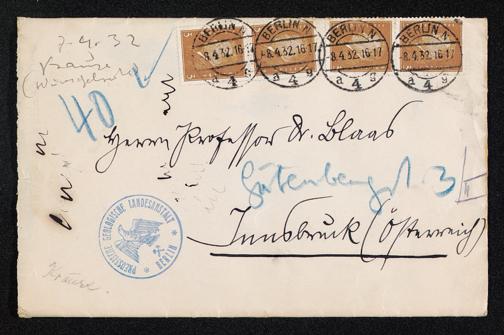 7.4.32
Krause
BERLIN N
-8.4.32.16-17
a 4 g
BERLIN N
-8.4.32.16-17
a 4 g
BERLIN N
-8.4.32.16-17
a 4 g
BERLIN N
-8.4.32.16-17
a 4 g
40
Herrn Professor Dr. Blaas
Gutenbergst 3
PREUSSISCHE GEOLOGISCHE LANDESANSTALT
* BERLIN *
Innsbruck (Österreich)
Krause.